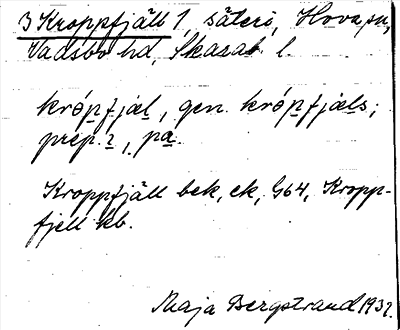 3 Kroppfjäll 1, säteri, Hova sn,
Vadsbo hd, Skasab. l.
krópfjæl, gen. krópfjæls;
prep. i, pa.
Kroppfjäll bek, ek, G64, Kropp-
fjell kb.
Maja Bergstrand 1932.